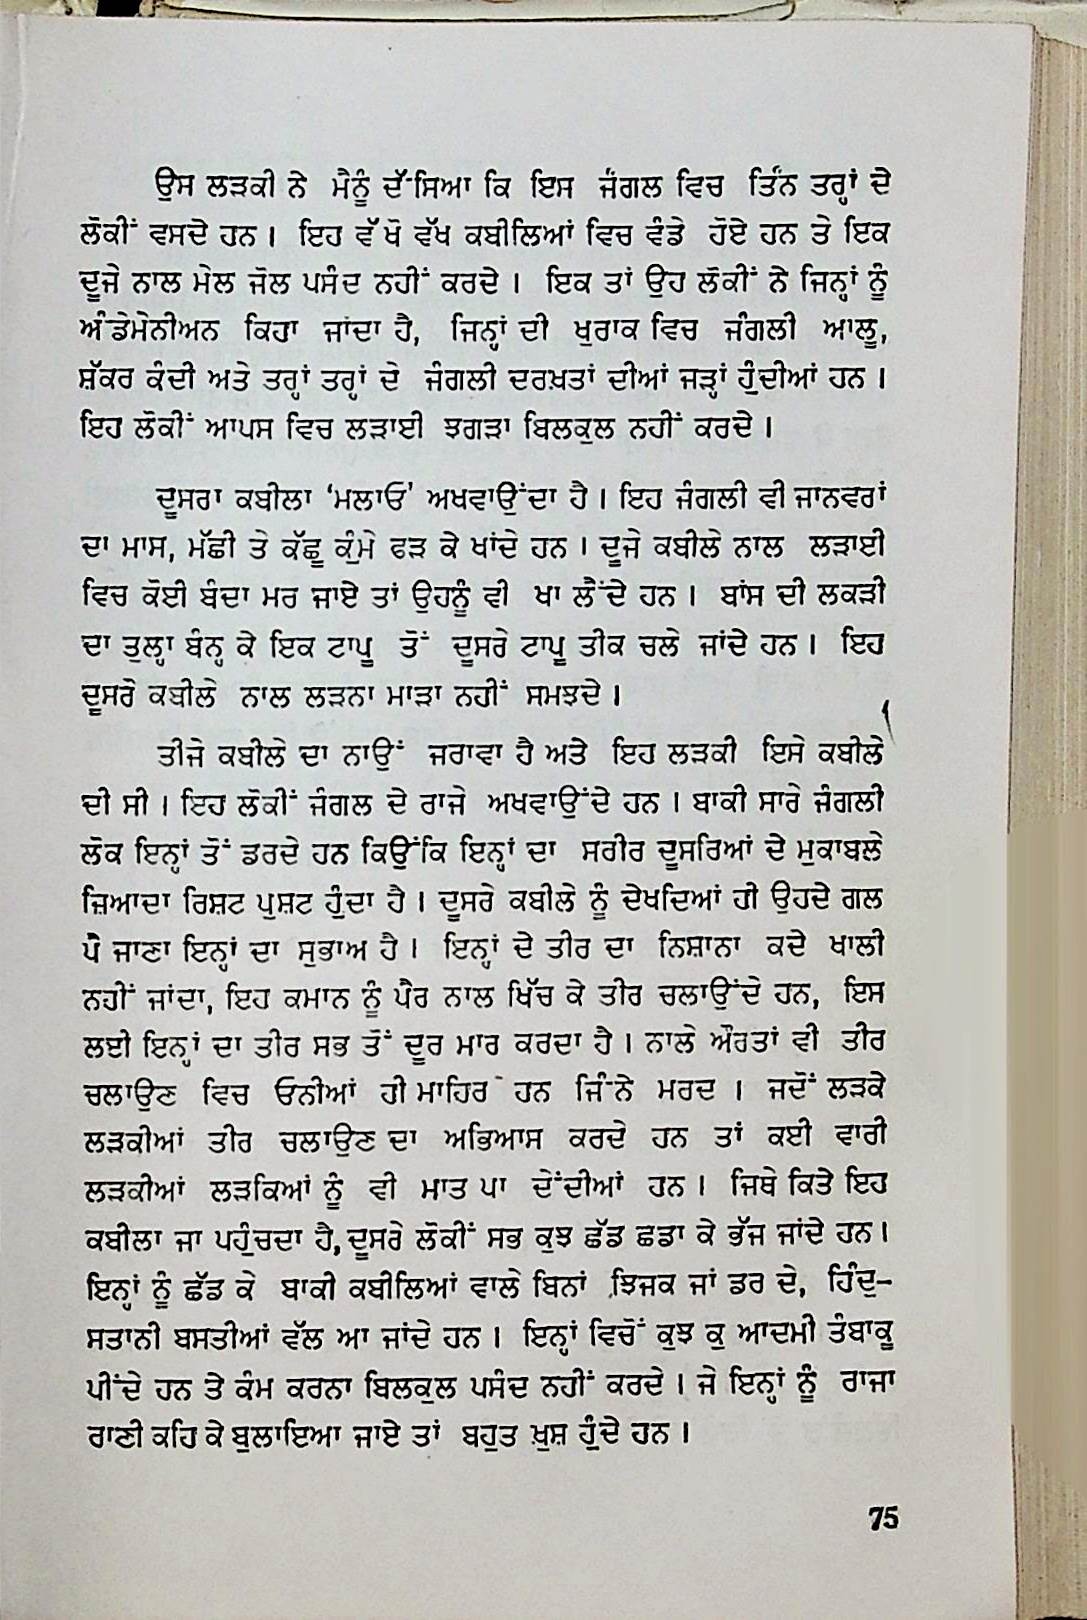 ਉਸ ਲੜਕੀ ਨੇ ਮੈਨੂੰ ਦੱਸਿਆ ਕਿ ਇਸ ਜੰਗਲ ਵਿਚ ਤਿੰਨ ਤਰ੍ਹਾਂ ਦੇ
ਲੋਕੀਂ ਵਸਦੇ ਹਨ। ਇਹ ਵੱਖੋ ਵੱਖ ਕਬੀਲਿਆਂ ਵਿਚ ਵੰਡੇ ਹੋਏ ਹਨ ਤੇ ਇਕ
ਦੂਜੇ ਨਾਲ ਮੇਲ ਜੋਲ ਪਸੰਦ ਨਹੀਂ ਕਰਦੇ। ਇਕ ਤਾਂ ਉਹ ਲੋਕੀਂ ਨੇ ਜਿਨ੍ਹਾਂ ਨੂੰ
ਅੰਡੇਮੇਨੀਅਨ ਕਿਹਾ ਜਾਂਦਾ ਹੈ, ਜਿਨ੍ਹਾਂ ਦੀ ਖੁਰਾਕ ਵਿਚ ਜੰਗਲੀ ਆਲੂ,
ਸ਼ੱਕਰ ਕੰਦੀ ਅਤੇ ਤਰ੍ਹਾਂ ਤਰ੍ਹਾਂ ਦੇ ਜੰਗਲੀ ਦਰਖ਼ਤਾਂ ਦੀਆਂ ਜੜ੍ਹਾਂ ਹੁੰਦੀਆਂ ਹਨ।
ਇਹ ਲੋਕੀਂ ਆਪਸ ਵਿਚ ਲੜਾਈ ਝਗੜਾ ਬਿਲਕੁਲ ਨਹੀਂ ਕਰਦੇ।
ਦੂਸਰਾ ਕਬੀਲਾ ‘ਮਲਾਓ’ ਅਖਵਾਉਂਦਾ ਹੈ। ਇਹ ਜੰਗਲੀ ਵੀ ਜਾਨਵਰਾਂ
ਦਾ ਮਾਸ, ਮੱਛੀ ਤੇ ਕੱਛੂ ਕੁੰਮੇ ਫੜ ਕੇ ਖਾਂਦੇ ਹਨ। ਦੂਜੇ ਕਬੀਲੇ ਨਾਲ ਲੜਾਈ
ਵਿਚ ਕੋਈ ਬੰਦਾ ਮਰ ਜਾਏ ਤਾਂ ਉਹਨੂੰ ਵੀ ਖਾ ਲੈਂਦੇ ਹਨ। ਬਾਂਸ ਦੀ ਲਕੜੀ
ਦਾ ਤੁਲ੍ਹਾ ਬੰਨ੍ਹ ਕੇ ਇਕ ਟਾਪੂ ਤੋਂ ਦੂਸਰੇ ਟਾਪੂ ਤੀਕ ਚਲੇ ਜਾਂਦੇ ਹਨ। ਇਹ
ਦੂਸਰੇ ਕਬੀਲੇ ਨਾਲ ਲੜਨਾ ਮਾੜਾ ਨਹੀਂ ਸਮਝਦੇ।
ਤੀਜੇ ਕਬੀਲੇ ਦਾ ਨਾਉਂ ਜਰਾਵਾ ਹੈ ਅਤੇ ਇਹ ਲੜਕੀ ਇਸੇ ਕਬੀਲੇ
ਦੀ ਸੀ। ਇਹ ਲੋਕੀਂ ਜੰਗਲ ਦੇ ਰਾਜੇ ਅਖਵਾਉਂਦੇ ਹਨ। ਬਾਕੀ ਸਾਰੇ ਜੰਗਲੀ
ਲੋਕ ਇਨ੍ਹਾਂ ਤੋਂ ਡਰਦੇ ਹਨ ਕਿਉਂਕਿ ਇਨ੍ਹਾਂ ਦਾ ਸਰੀਰ ਦੂਸਰਿਆਂ ਦੇ ਮੁਕਾਬਲੇ
ਜ਼ਿਆਦਾ ਰਿਸ਼ਟ ਪੁਸ਼ਟ ਹੁੰਦਾ ਹੈ। ਦੂਸਰੇ ਕਬੀਲੇ ਨੂੰ ਦੇਖਦਿਆਂ ਹੀ ਉਹਦੇ ਗਲ
ਪੈ ਜਾਣਾ ਇਨ੍ਹਾਂ ਦਾ ਸੁਭਾਅ ਹੈ। ਇਨ੍ਹਾਂ ਦੇ ਤੀਰ ਦਾ ਨਿਸ਼ਾਨਾ ਕਦੇ ਖਾਲੀ
ਨਹੀਂ ਜਾਂਦਾ, ਇਹ ਕਮਾਨ ਨੂੰ ਪੈਰ ਨਾਲ ਖਿੱਚ ਕੇ ਤੀਰ ਚਲਾਉਂਦੇ ਹਨ, ਇਸ
ਲਈ ਇਨ੍ਹਾਂ ਦਾ ਤੀਰ ਸਭ ਤੋਂ ਦੂਰ ਮਾਰ ਕਰਦਾ ਹੈ। ਨਾਲੇ ਔਰਤਾਂ ਵੀ ਤੀਰ
ਚਲਾਉਣ ਵਿਚ ਓਨੀਆਂ ਹੀ ਮਾਹਿਰ ਹਨ ਜਿੰਨੇ ਮਰਦ। ਜਦੋਂ ਲੜਕੇ
ਲੜਕੀਆਂ ਤੀਰ ਚਲਾਉਣ ਦਾ ਅਭਿਆਸ ਕਰਦੇ ਹਨ ਤਾਂ ਕਈ ਵਾਰੀ
ਲੜਕੀਆਂ ਲੜਕਿਆਂ ਨੂੰ ਵੀ ਮਾਤ ਪਾ ਦੇਂਦੀਆਂ ਹਨ। ਜਿਥੇ ਕਿਤੇ ਇਹ
ਕਬੀਲਾ ਜਾ ਪਹੁੰਚਦਾ ਹੈ, ਦੂਸਰੇ ਲੋਕੀਂ ਸਭ ਕੁਝ ਛੱਡ ਛਡਾ ਕੇ ਭੱਜ ਜਾਂਦੇ ਹਨ।
ਇਨ੍ਹਾਂ ਨੂੰ ਛੱਡ ਕੇ ਬਾਕੀ ਕਬੀਲਿਆਂ ਵਾਲੇ ਬਿਨਾਂ ਝਿਜਕ ਜਾਂ ਡਰ ਦੇ, ਹਿੰਦੁ-
ਸਤਾਨੀ ਬਸਤੀਆਂ ਵੱਲ ਆ ਜਾਂਦੇ ਹਨ। ਇਨ੍ਹਾਂ ਵਿਚੋਂ ਕੁਝ ਕੁ ਆਦਮੀ ਤੰਬਾਕੂ
ਪੀਂਦੇ ਹਨ ਤੇ ਕੰਮ ਕਰਨਾ ਬਿਲਕੁਲ ਪਸੰਦ ਨਹੀਂ ਕਰਦੇ। ਜੇ ਇਨ੍ਹਾਂ ਨੂੰ ਰਾਜਾ
ਰਾਣੀ ਕਹਿ ਕੇ ਬੁਲਾਇਆ ਜਾਏ ਤਾਂ ਬਹੁਤ ਖ਼ੁਸ਼ ਹੁੰਦੇ ਹਨ।
75